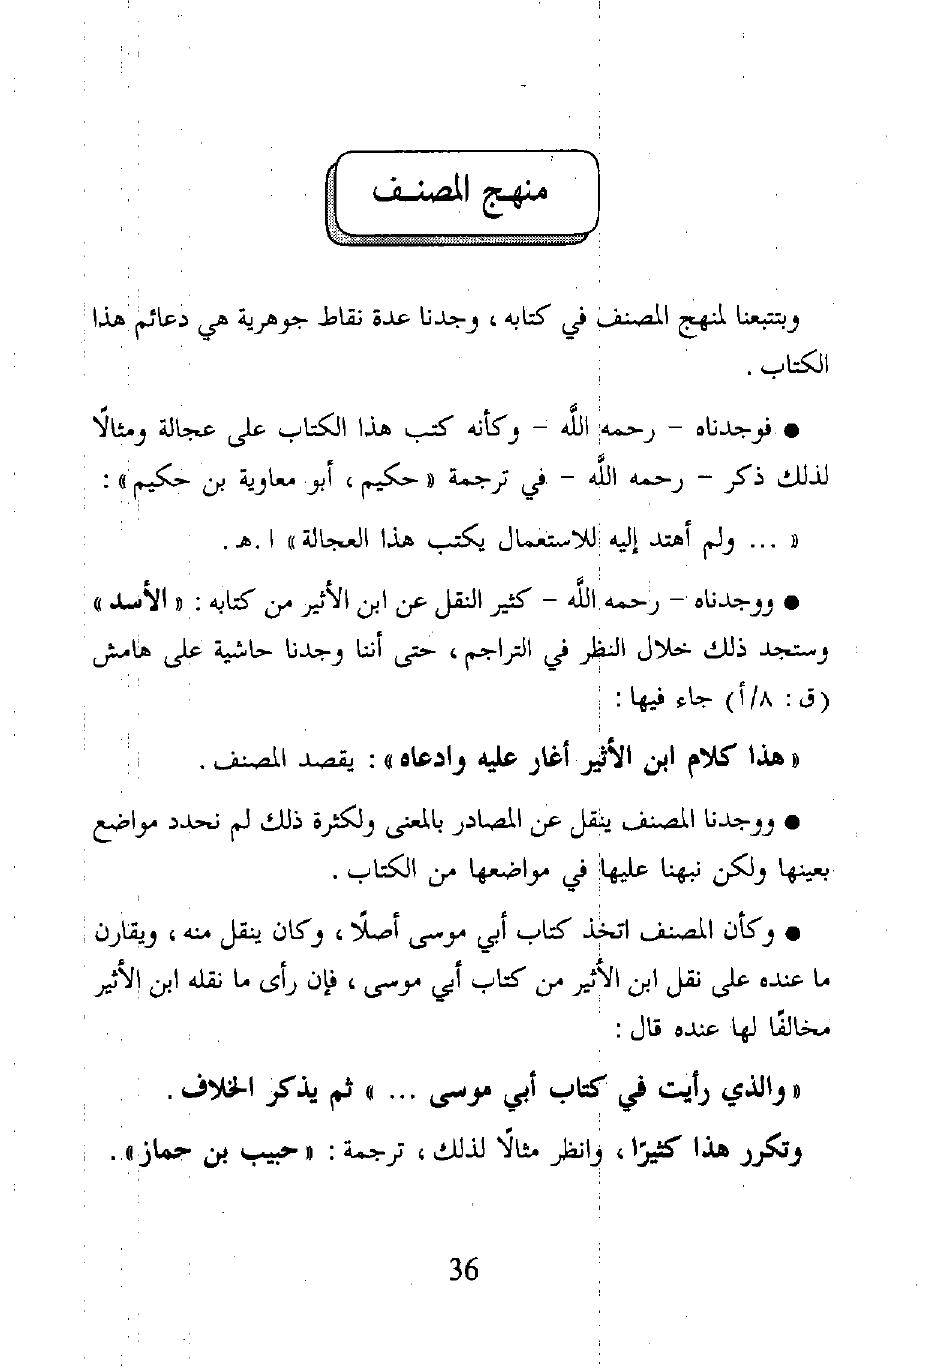 منهج المصنف
وبتتبعنا لمنهج المصنف في كتابه ، وجدنا عدة نقاط جوهرية هي دعائم هذا
الكتاب .
● فوجدناه – رحمه اللَّه – وكأنه كتب هذا الكتاب على عجالة ومثالًا
لذلك ذكر – رحمه اللَّه – في ترجمة « حكيم ، أبو معاوية بن حكيم» :
« ... ولم أهتد إليه للاستعمال يكتب هذا العجالة » ا .هـ .
● ووجدناه – رحمه اللَّه – كثير النقل عن ابن الأثير من كتابه : « الأسد »
وستجد ذلك خلال النظر في التراجم ، حتى أننا وجدنا حاشية على هامش
(ق : ٨/أ) جاء فيها :
« هذا كلام ابن الأثير أغار عليه وادعاه » : يقصد المصنف .
● ووجدنا المصنف ينقل عن المصادر بالمعنى ولكثرة ذلك لم نحدد مواضع
بعينها ولكن نبهنا عليها في مواضعها من الكتاب .
● وكأن المصنف اتخذ كتاب أبي موسى أصلًا ، وكان ينقل منه ، ويقارن
ما عنده على نقل ابن الأثير من كتاب أبي موسى ، فإن رأى ما نقله ابن الأثير
مخالفًا لها عنده قال :
« والذي رأيت في كتاب أبي موسى ... » ثم يذكر الخلاف .
وتكرر هذا كثيرًا ، وانظر مثالًا لذلك ، ترجمة : « حبيب بن حماز» .
36